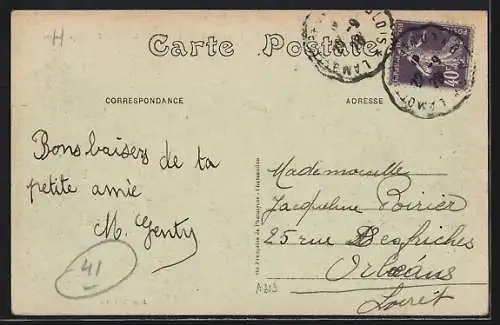 H
Carte Postale
CORRESPONDANCE
ADRESSE
Bons baisers de ta
petite amie
M. Gentry
41
Mademoiselle
Jacqueline Poirier
25 rue Desfriches
Orléans
Loiret
A323
40
LAMOT